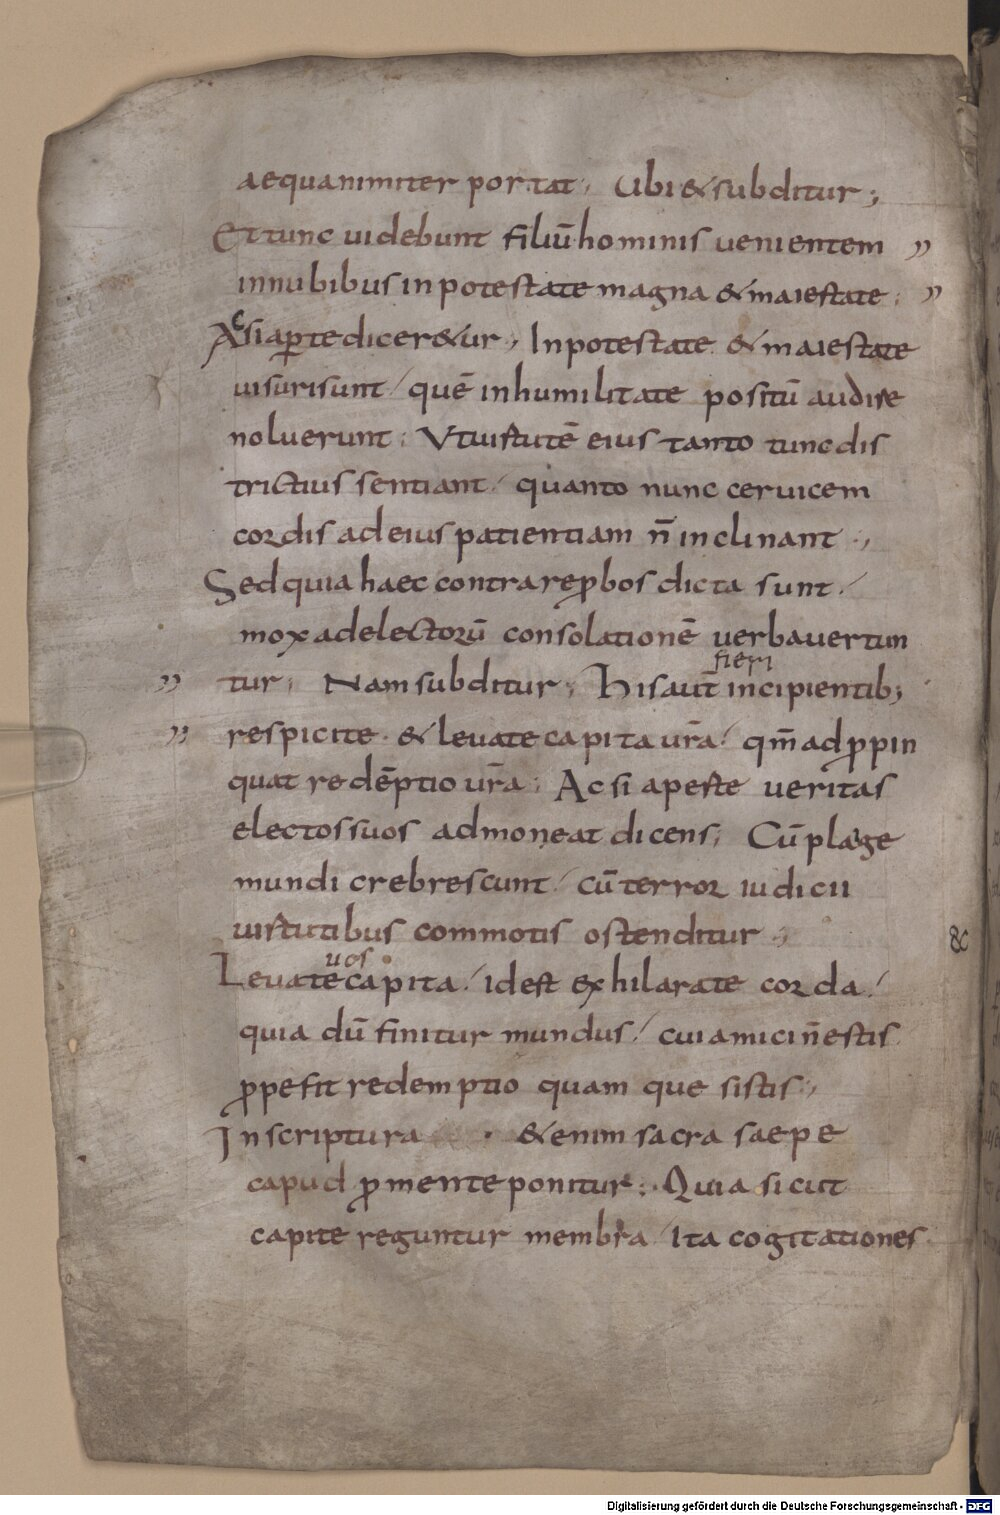 aequanimiter portat; Ubi & subditur;
Et tunc uidebunt filiū hominis uenientem ”
in nubibus in potestate magna & maiestate; ”
Ac si aꝑte dicer&ur; In potestate & maiestate
uisuri sunt / quē in humilitate positū audire
noluerunt; Ut uirtutē eius tanto tunc dis
trictius sentiant / quanto nunc ceruicem
cordis ad eius patientiam n̄ inclinant;
Sed quia haec contra reꝓbos dicta sunt /
mox ad electorū consolationē uerba uertun
fieri
” tur; Nam subditur; His aut̄ incipientib;
” respicite & leuate capita ur̄a / qm̄ adꝓpin
quat redēptio ur̄a; Ac si aperte ueritas
electos suos admoneat dicens; Cū plagę
mundi crebrescunt / cū terror iudicii
uirtutibus commotis ostenditur; &
uos
Leuate capita / id est exhilarate corda /
quia dū finitur mundus / cui amici n̄ estis
ꝓpe fit redemptio quam que sistis;
In scriptura & enim sacra saepe
capud ꝓ mente ponitur; Quia sicut
capite reguntur membra / Ita cogitationes
Digitalisierung gefördert durch die Deutsche Forschungsgemeinschaft - DFG